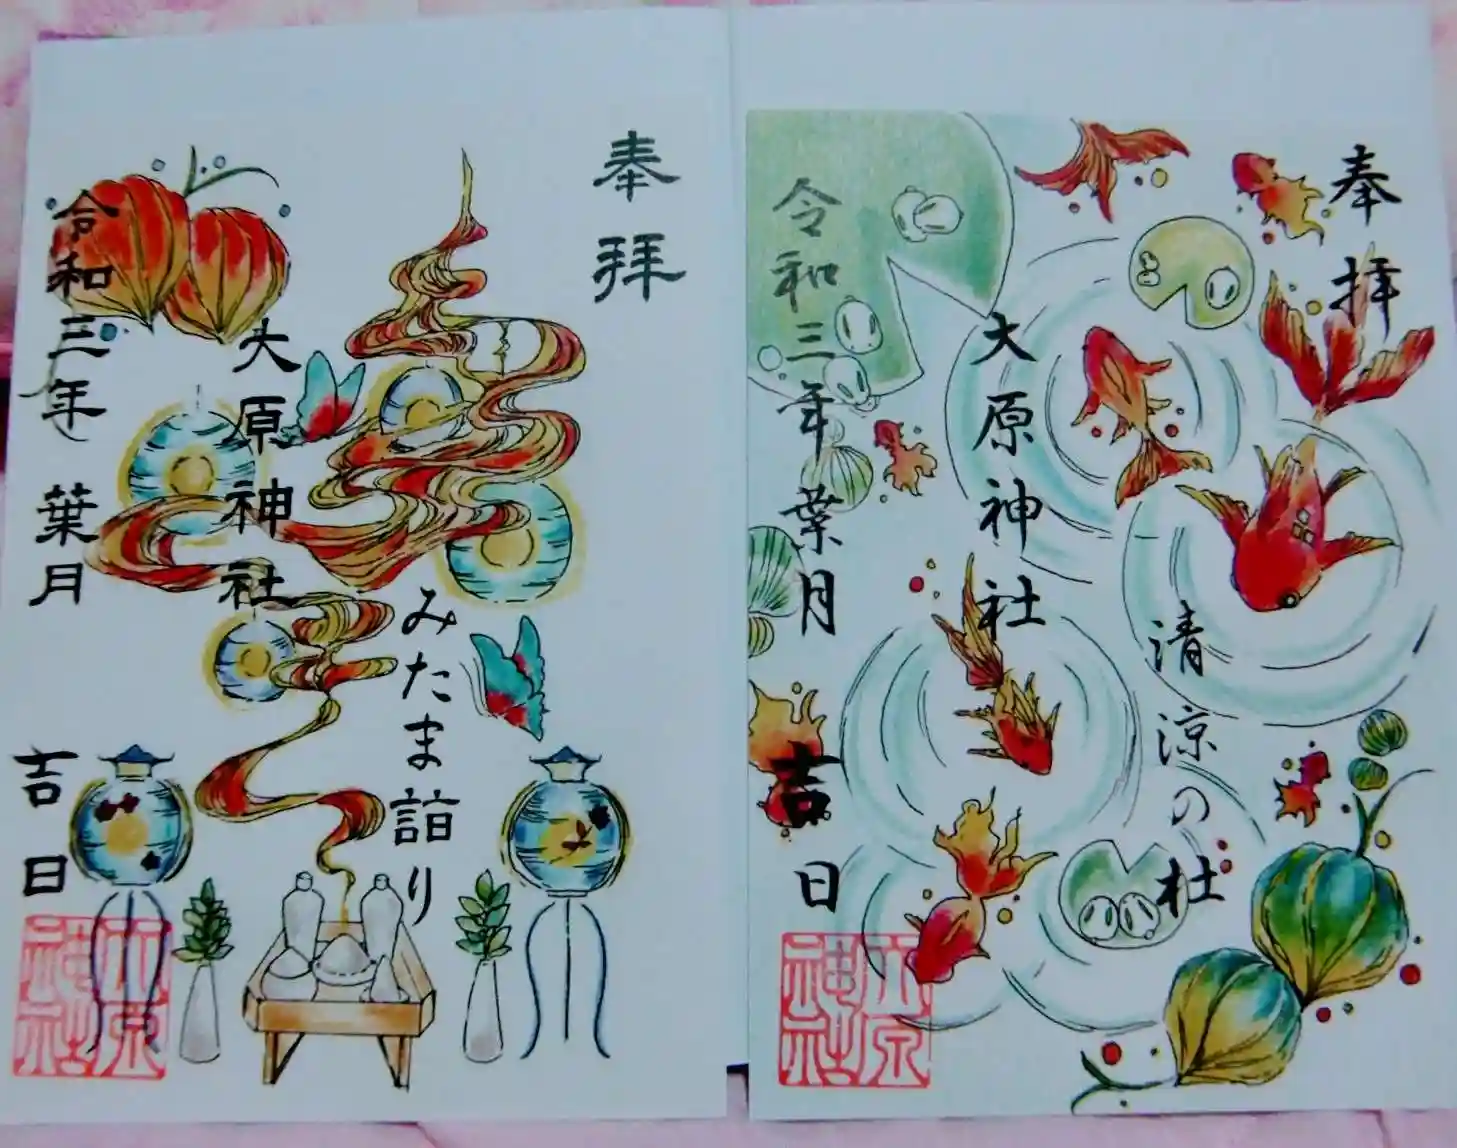 奉拝
清涼の杜
大原神社
令和三年葉月吉日
大原神社
奉拝
みたま詣り
大原神社
令和三年葉月吉日
大原神社